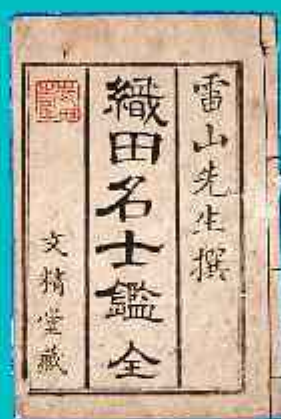 雷山先生撰
織田名士鑑 全
文精堂藏